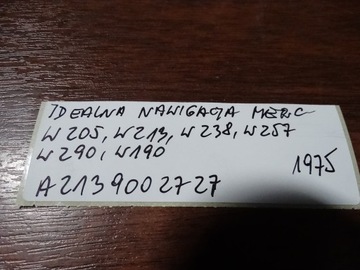 IDEALNA NAWIGACJA MERC
W205, W213, W238, W257
W290, W190
1975
A2139002727